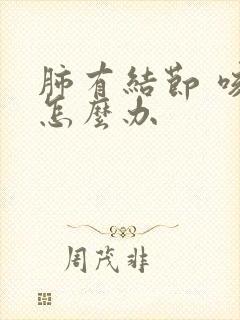 肺有結節
怎麼办
周茂非